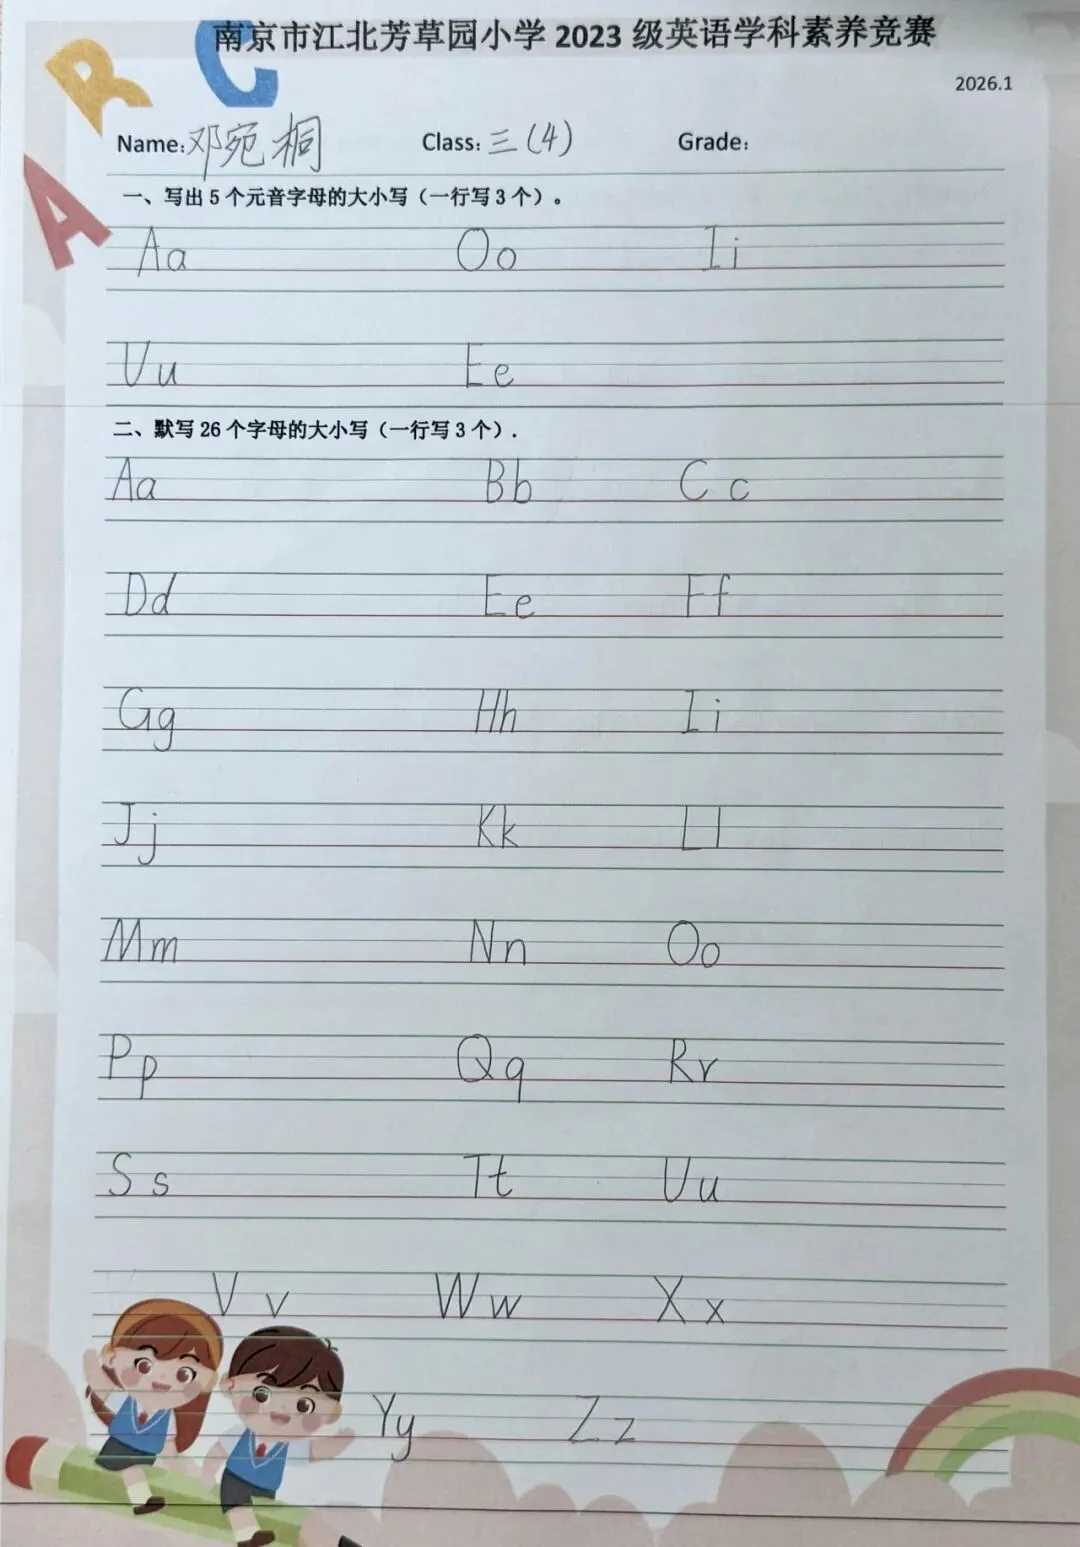 R C
A
南京市江北芳草园小学 2023 级英语学科素养竞赛
2026.1
Name: 邓宛桐 Class: 三(4) Grade:
一、写出 5 个元音字母的大小写（一行写 3 个）。
Aa Oo Ii
Uu Ee
二、默写 26 个字母的大小写（一行写 3 个）.
Aa Bb Cc
Dd Ee Ff
Gg Hh Ii
Jj Kk Ll
Mm Nn Oo
Pp Qq Rr
Ss Tt Uu
Vv Ww Xx
Yy Zz